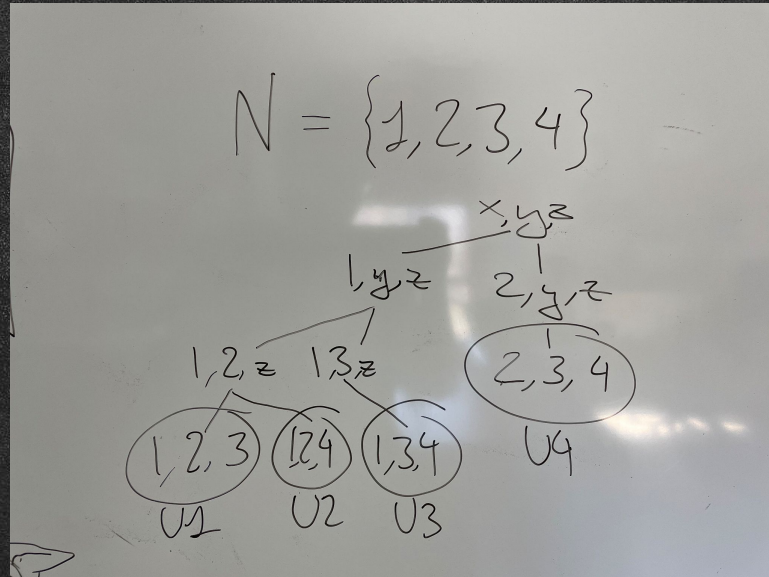 N = {1,2,3,4}
x,y,z
1,y,z 2,y,z
1,2,z 1,3,z 2,3,4
1,2,3 1,2,4 1,3,4 U4
U1 U2 U3